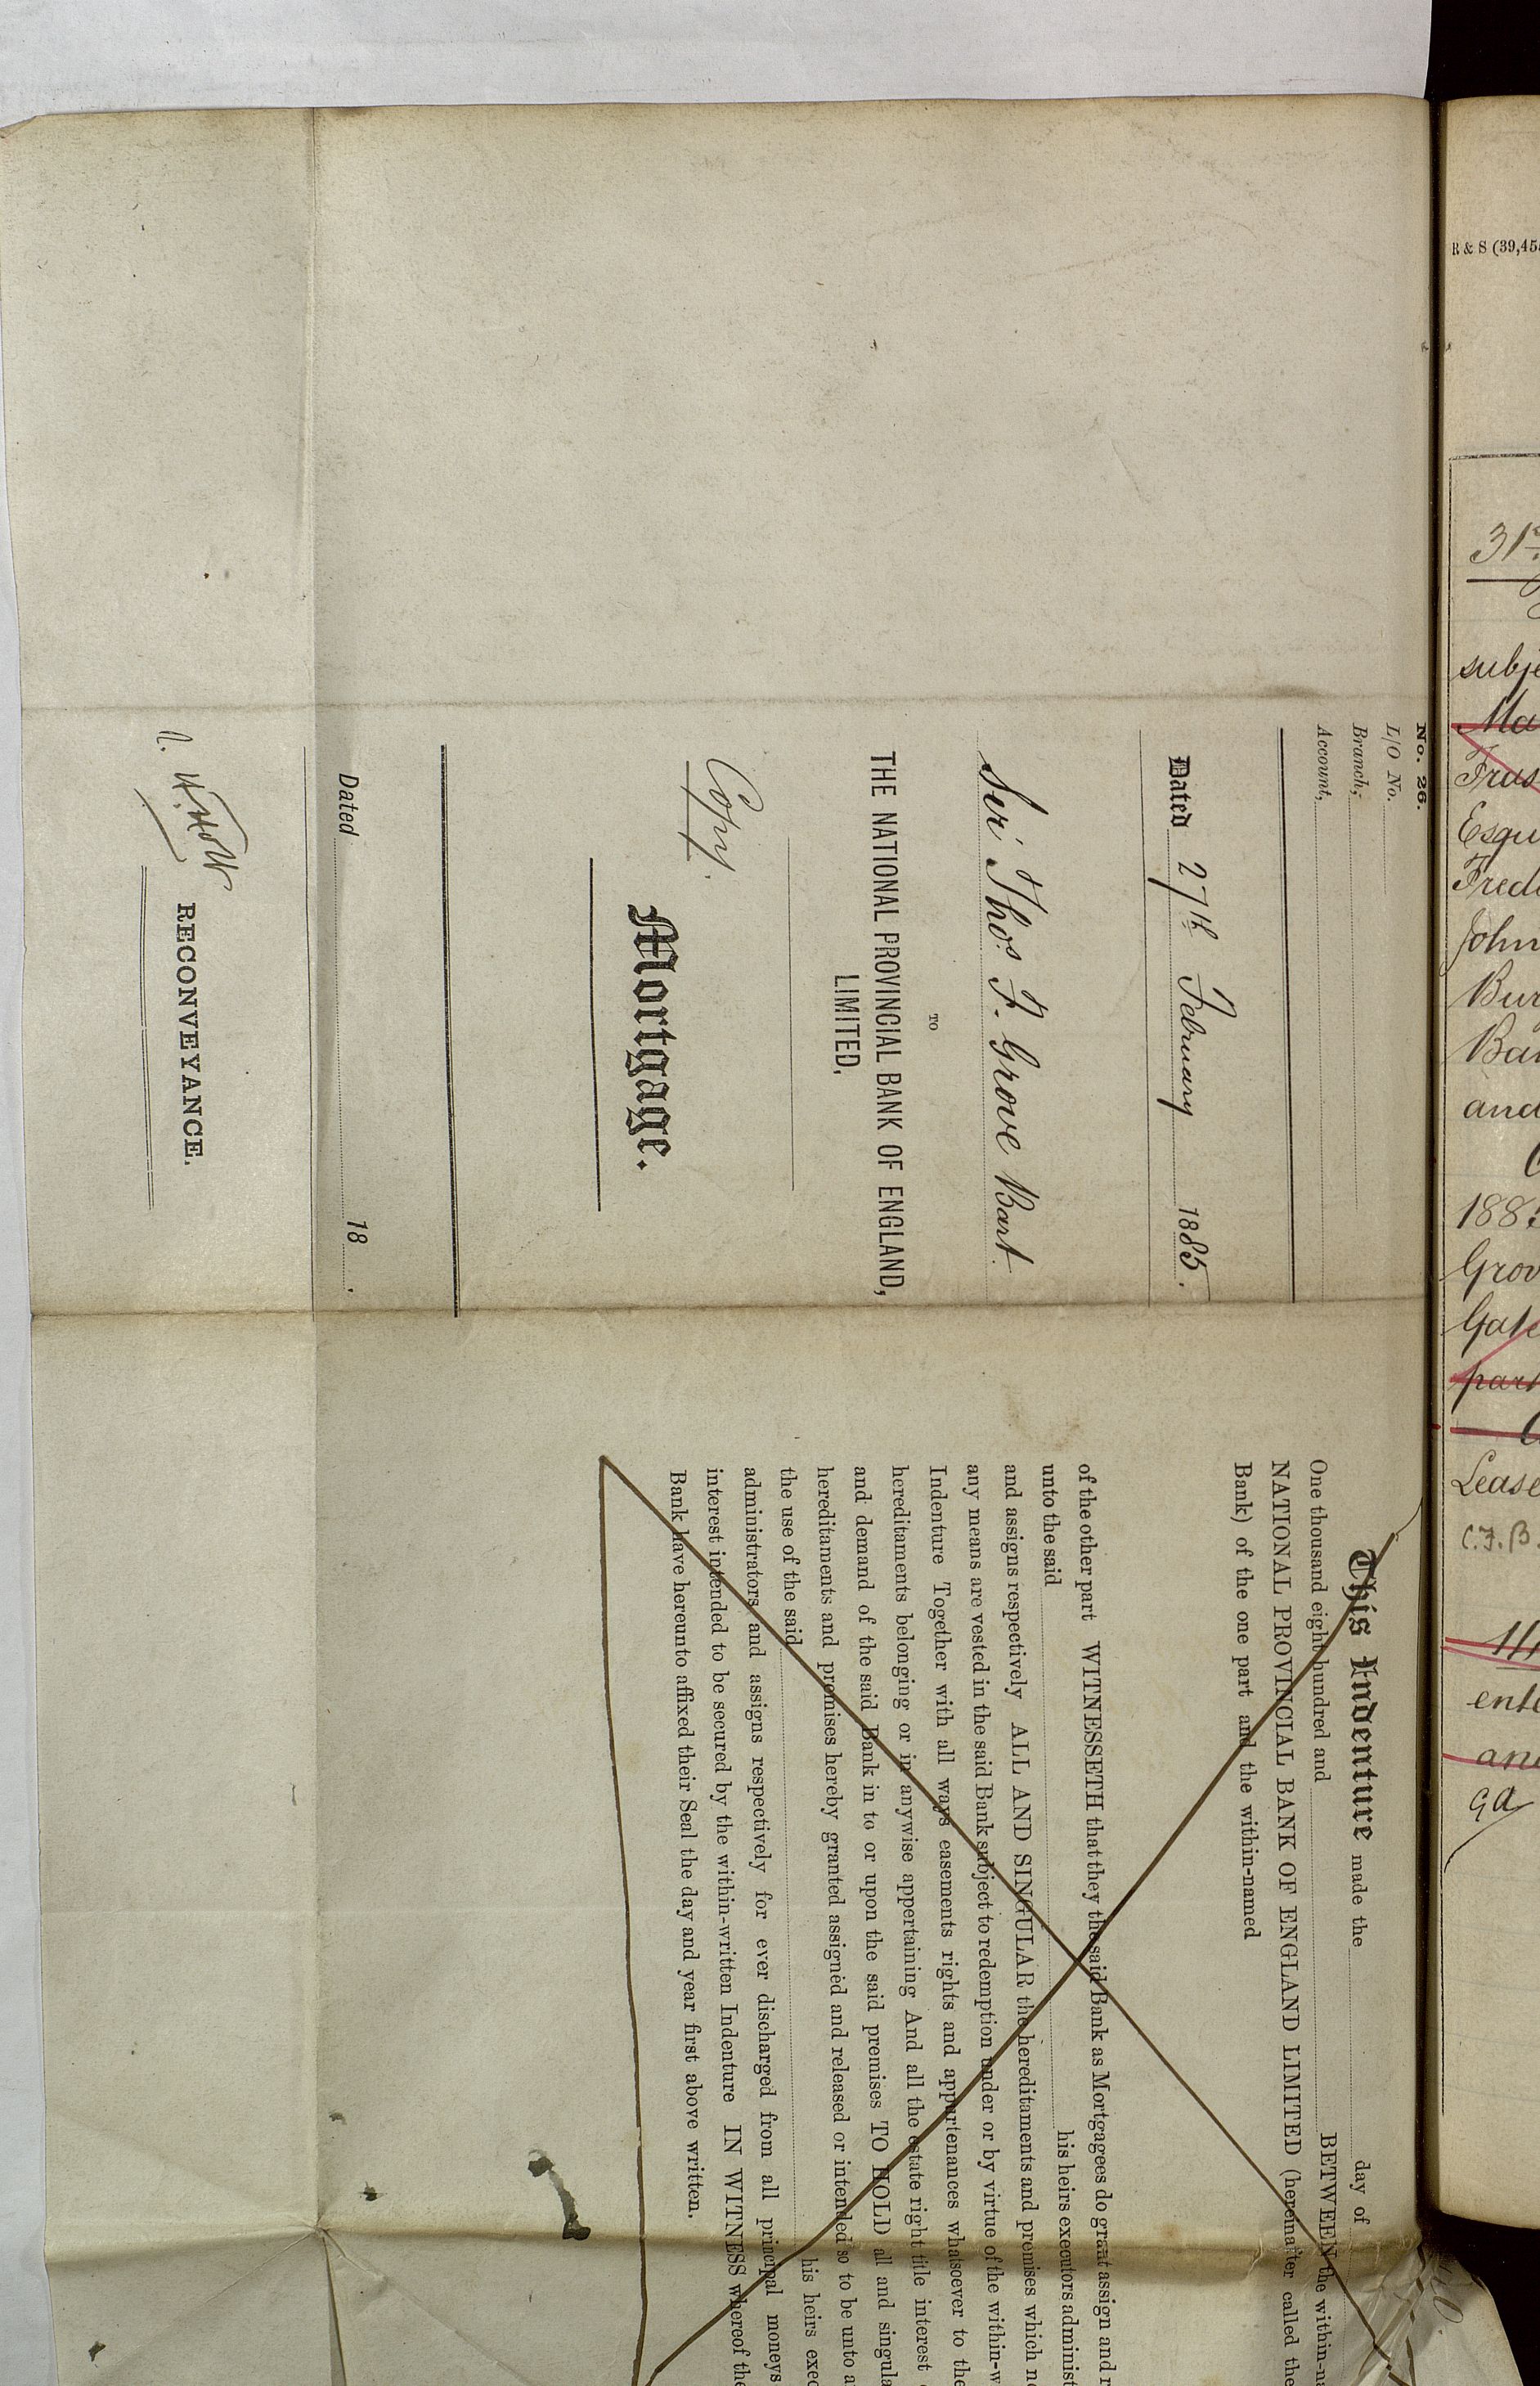 No. 26.
L/O No.
Branch,
Account,
Dated 27th February 1885.
Sir Thos. F. Grove Bart
TO
THE NATIONAL PROVINCIAL BANK OF ENGLAND,
LIMITED.
Copy.
Mortgage.
Dated 18 .
RECONVEYANCE.
This Indenture made the day of
One thousand eight hundred and BETWEEN the within-na
NATIONAL PROVINCIAL BANK OF ENGLAND LIMITED (hereinafter called the
Bank) of the one part and the within-named
of the other part WITNESSETH that they the said Bank as Mortgagees do grant assign and r
unto the said his heirs executors administ
and assigns respectively ALL AND SINGULAR the hereditaments and premises which no
any means are vested in the said Bank subject to redemption under or by virtue of the within-w
Indenture Together with all ways easements rights and appurtenances whatsoever to the
hereditaments belonging or in anywise appertaining And all the estate right title interest
and demand of the said Bank in to or upon the said premises TO HOLD all and singula
hereditaments and premises hereby granted assigned and released or intended so to be unto a
the use of the said his heirs exec
administrators and assigns respectively for ever discharged from all principal moneys
interest intended to be secured by the within-written Indenture IN WITNESS whereof the
Bank have hereunto affixed their Seal the day and year first above written.
R & S (39,45
31st
subje
Ma
Trus
Esqu
Frede
John
Bur
Ban
and
188
Grov
Gate
part
Lease
C.F.B.
ente
and